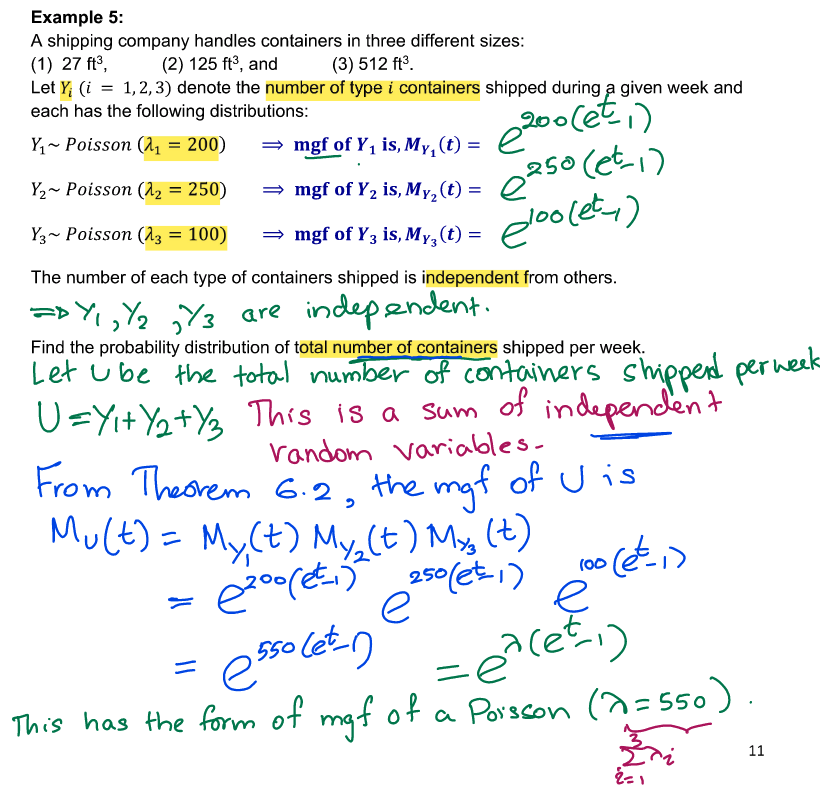 Example 5:
A shipping company handles containers in three different sizes:
(1) 27 ft³, (2) 125 ft³, and (3) 512 ft³.
Let Yᵢ (i = 1, 2, 3) denote the number of type i containers shipped during a given week and
each has the following distributions:
Y₁~ Poisson (λ₁ = 200) ⟹ mgf of Y₁ is, M_Y₁(t) = e^200(e^t-1)
Y₂~ Poisson (λ₂ = 250) ⟹ mgf of Y₂ is, M_Y₂(t) = e^250(e^t-1)
Y₃~ Poisson (λ₃ = 100) ⟹ mgf of Y₃ is, M_Y₃(t) = e^100(e^t-1)
The number of each type of containers shipped is independent from others.
⟹ Y₁, Y₂, Y₃ are independent.
Find the probability distribution of total number of containers shipped per week.
Let U be the total number of containers shipped per week
U = Y₁+Y₂+Y₃ This is a sum of independent
random variables.
From Theorem 6.2, the mgf of U is
M_U(t) = M_Y₁(t) M_Y₂(t) M_Y₃(t)
= e^200(e^t-1) e^250(e^t-1) e^100(e^t-1)
= e^550(e^t-1) = e^λ(e^t-1)
This has the form of mgf of a Poisson (λ=550).
3
Σλᵢ
i=1
11